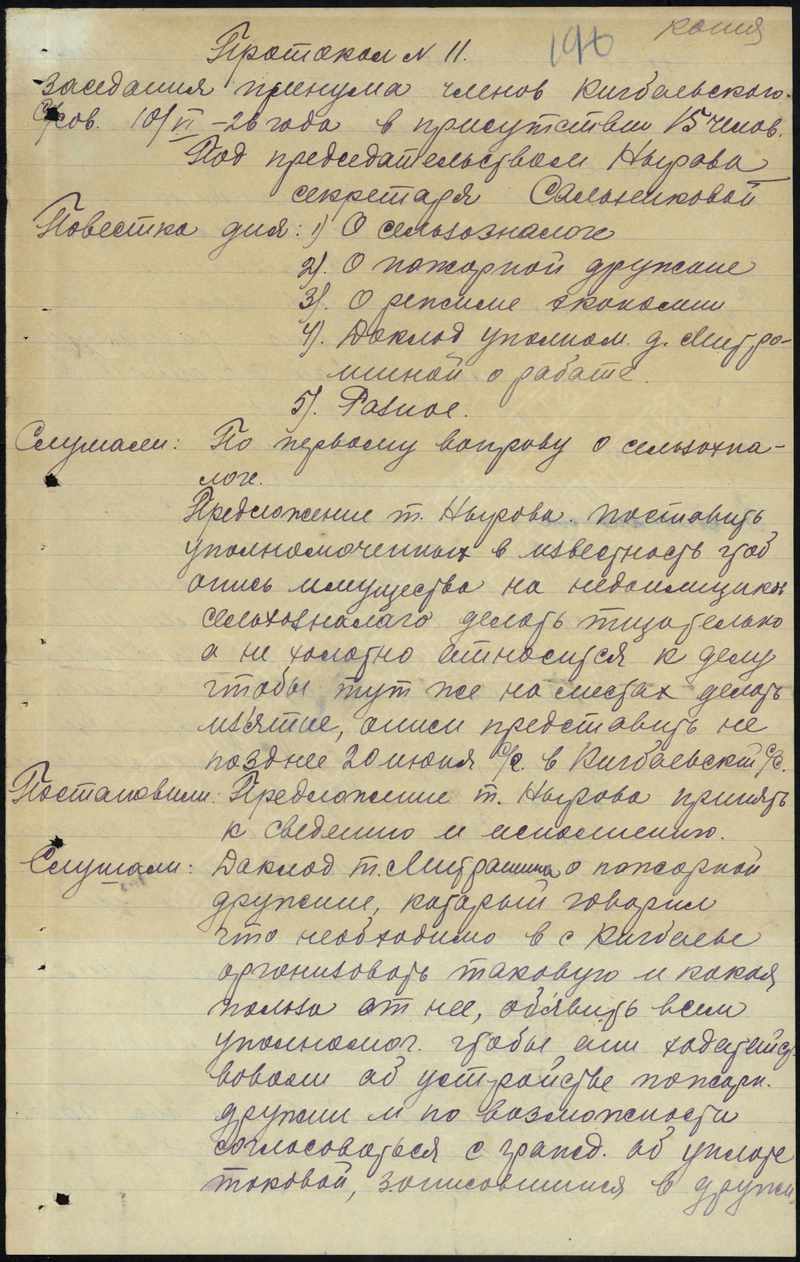 копия
196
Протокол N 11.
заседания пленума членов Кигбаевского
с/сов. 10/VI-26 года в присутствии 15 челов.
Под председательством Нырова
секретаря Сальниковой
Повестка дня: 1) О сельхозналоге
2). О пожарной дружине
3). О режиме экономии
4). Доклад уполном. д. Митро-
шиной о работе.
5). Разное.
Слушали: По первому вопросу о сельхозна-
логе.
Предложение т. Нырова. поставить
уполномоченных в известность чтоб
опись имущества на недоимщиков
сельхозналаго делать тщательно
а не холотно относится к делу
чтобы тут же на местах делать
изъятие, описи представить не
позднее 20 июня с/г. в Кигбаевский с/с.
Постановили: Предложение т. Нырова принять
к сведению и исполнению.
Слушали: Доклад т. Митрошина о пожарной
дружине, который говорил
что необходимо в с Кигбаеве
организовать таковую и какая
польза от нее, объявить всем
уполномоч. чтобы они ходатайст
вовали об устройстве пожарн.
дружин и по возможности
согласоваться с гражд. об уплате
таковой, записавшимся в дружи